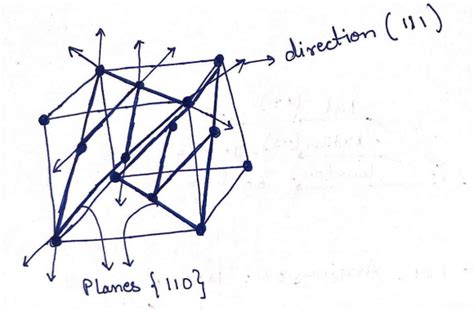 direction (111)
Planes {110}